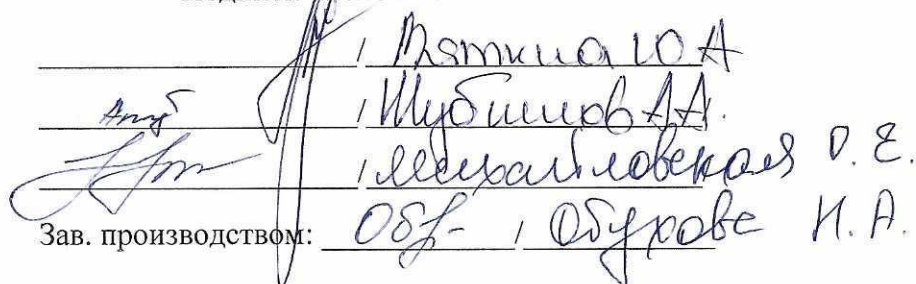 / Вяткина Ю А
/ Шубников А.А.
/ Михайловская О. Е.
Зав. производством: / Обухова Н. А.